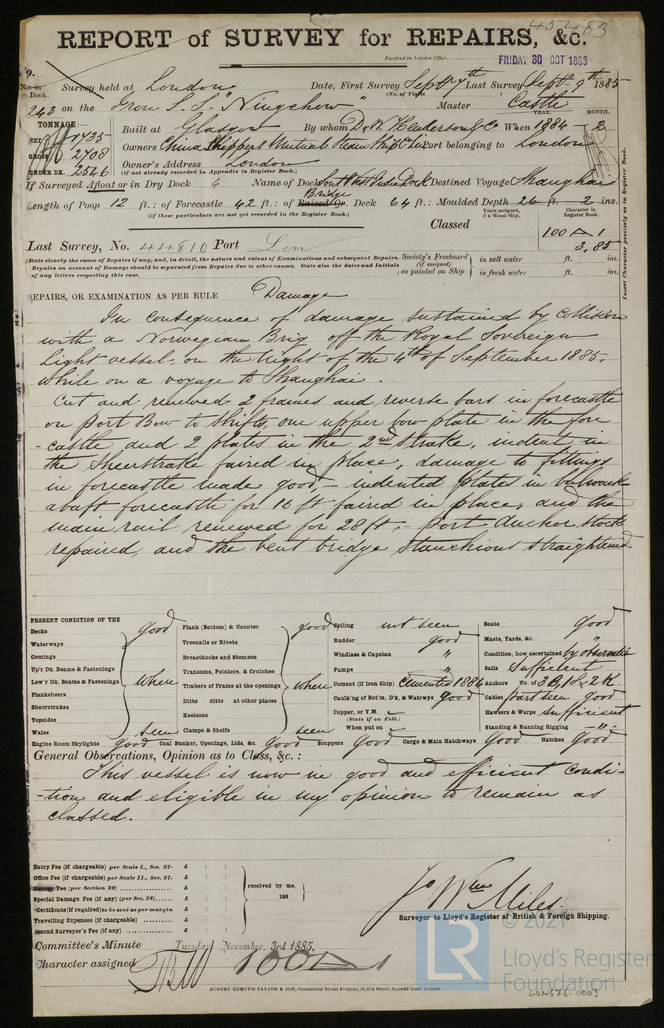 45483
REPORT of SURVEY for REPAIRS, &c.
Received in London Office,
FRIDAY 30 OCT 1885
9.
No. in Book. Survey held at London Date, First Survey Septr 7th Last Survey Septr 9th 1885
(No. of Visits )
243 on the Iron S.S. "Ningchow" Master Castle
TONNAGE: YEAR. MONTH.
NET 1735 Built at Glasgow By whom D. & W. Henderson & Co When 1884 - 2
GROSS 2708 Owners China Shippers Mutual Steam Ship Co Ld Port belonging to London
UNDER DK. 2546 Owner's Address London
(if not already recorded in Appendix to Register Book.)
If Surveyed Afloat or in Dry Dock Name of Dock South West India Dock Destined Voyage Shanghai
Length of Poop 12 ft.: of Forecastle 42 ft.: of Raised Qr. Bridge Deck 64 ft.: Moulded Depth 26 ft. 2 ins.
(if these particulars are not yet recorded in the Register Book.)
Years assigned, if a Wood Ship. Character in Register Book.
Classed 100 A 1
3,85
Insert Character precisely as in Register Book.
Last Survey, No. 44810 Port Lon
(State clearly the cause of Repairs if any, and, in detail, the nature and extent of Examinations and subsequent Repairs.
Repairs on account of Damage should be separated from Repairs due to other causes. State also the dates and Initials of any letters respecting this case.
Society's Freeboard (if assigned) as painted on Ship
in salt water ft. ins.
in fresh water ft. ins.
REPAIRS, OR EXAMINATION AS PER RULE Damage
In consequence of damage sustained by collision
with a Norwegian Brig off the Royal Sovereign
Light vessel, on the night of the 4th of September 1885.
while on a voyage to Shanghai.
Cut and renewed 2 frames and reverse bars in forecastle
on Port Bow to shifts, one upper bow plate in the fore
-castle and 2 plates in the 2nd strake, indent in
the Sheerstrake faired in place, damage to fittings
in forecastle made good - indented plates in bulwark
abaft forecastle for 16 ft faired in place, and the
main rail renewed for 28 ft. - Port Anchor stock
repaired, and the bent bridge stanchions straightened
PRESENT CONDITION OF THE
Decks good
Waterways
Comings
Up'r Dk. Beams & Fastenings
Low'r Dk. Beams & Fastenings where
Planksheers
Sheerstrakes
Topsides
Wales seen
Engine Room Skylights good
Plank (Bottom) & Counter good
Treenails or Rivets
Breasthooks and Stemson
Transoms, Pointers, & Crutches
Timbers of Frame at the openings where
Ditto ditto at other places
Keelsons
Clamps & Shelfs seen
Coal Bunker, Openings, Lids, &c. good
Ceiling not seen
Rudder good
Windlass & Capstan "
Pumps "
Cement (if Iron Ship) Cemented 1884
Caulk'ng of Bot'm, D'k, & Watrwys good
Copper, or Y.M.
(State if on Felt.)
When put on
Scuppers good Cargo & Main Hatchways good
Boats good
Masts, Yards, &c. "
Condition, how ascertained by observation
Sails Sufficient
Anchors No. of 3B, 1S, 2K
Cables part seen good
Hawsers & Warps sufficient
Standing & Running Rigging "
Hatches good
General Observations, Opinion as to Class, &c.:
This vessel is now in good and efficient condi-
-tion and eligible in my opinion to remain as
classed.
Entry Fee (if chargeable) per Scale I., Sec. 27. £ : :
Office Fee (if chargeable) per Scale II., Sec. 27. £ : :
Survey Fee (per Section 28) £ : :
Special Damage Fee (if any) (per Sec. 28) £ : :
*Certificate (if required) to be sent as per margin
Travelling Expenses (if chargeable) £ : :
Second Surveyor's Fee (if any) £ : :
received by me,
188
Jo Wm Miles.
Surveyor to Lloyd's Register of British & Foreign Shipping.
Committee's Minute Tuesday November, 3rd 1885.
Character assigned 100 A 1
ROBERT EDMUND TAYLOR & SON, Commercial Steam Printers, 19, Old Street, Goswell Road, London.
© 2021
LR
Lloyd's Register
Foundation
LON675-0003